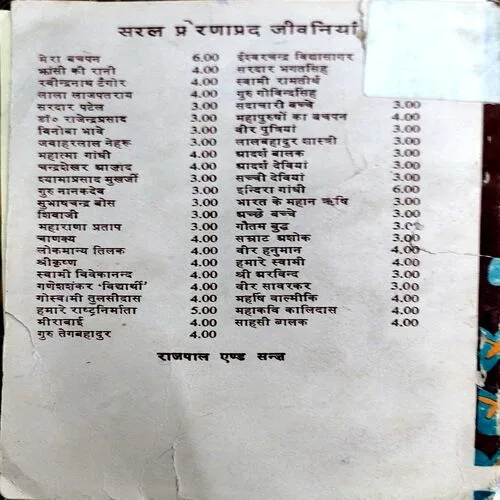 सरल प्रेरणाप्रद जीवनियां
मेरा बचपन 6.00
झांसी की रानी 4.00
रवीन्द्रनाथ टैगोर 4.00
लाला लाजपतराय 4.00
सरदार पटेल 3.00
डॉ॰ राजेन्द्रप्रसाद 3.00
विनोबा भावे 3.00
जवाहरलाल नेहरू 3.00
महात्मा गांधी 4.00
चन्द्रशेखर आज़ाद 4.00
श्यामाप्रसाद मुखर्जी 3.00
गुरु नानकदेव 3.00
सुभाषचन्द्र बोस 3.00
शिवाजी 3.00
महाराणा प्रताप 3.00
चाणक्य 4.00
लोकमान्य तिलक 4.00
श्रीकृष्ण 4.00
स्वामी विवेकानन्द 4.00
गणेशशंकर 'विद्यार्थी' 4.00
गोस्वामी तुलसीदास 4.00
हमारे राष्ट्रनिर्माता 5.00
मीराबाई 4.00
गुरु तेगबहादुर 4.00
ईश्वरचन्द्र विद्यासागर
सरदार भगतसिंह
स्वामी रामतीर्थ
गुरु गोविन्दसिंह
सदाचारी बच्चे 3.00
महापुरुषों का बचपन 4.00
वीर पुत्रियां 3.00
लालबहादुर शास्त्री 3.00
आदर्श बालक 3.00
आदर्श देवियां 3.00
सच्ची देवियां 3.00
इन्दिरा गांधी 6.00
भारत के महान ऋषि 3.00
अच्छे बच्चे 3.00
गौतम बुद्ध 3.00
सम्राट अशोक 3.00
वीर हनुमान 4.00
हमारे स्वामी 4.00
श्री अरविन्द 3.00
वीर सावरकर 3.00
महर्षि वाल्मीकि 4.00
महाकवि कालिदास 4.00
साहसी बालक 4.00
राजपाल एण्ड सन्ज़